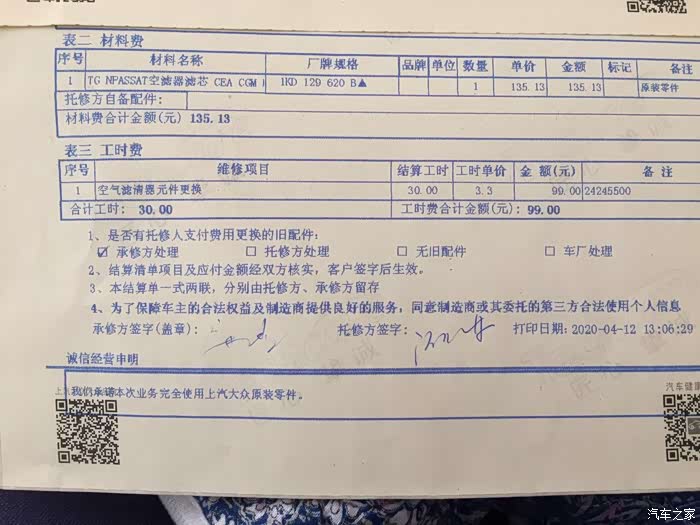 表二 材料费
序号 材料名称 厂牌规格 品牌 单位 数量 单价 金额 标记 备注
1 TG NPASSAT空滤器滤芯 CEA CGM 1KD 129 620 B▲ 1 135.13 135.13 原装零件
托修方自备配件:
材料费合计金额(元) 135.13
表三 工时费
序号 维修项目 结算工时 工时单价 金 额(元) 备 注
1 空气滤清器元件更换 30.00 3.3 99.00 24245500
合计工时: 30.00 工时费合计金额(元): 99.00
1、是否有托修人支付费用更换的旧配件:
☑ 承修方处理 □ 托修方处理 □ 无旧配件 □ 车厂处理
2、结算清单项目及应付金额经双方核实，客户签字后生效。
3、本结算单一式两联，分别由托修方、承修方留存
4、为了保障车主的合法权益及制造商提供良好的服务，同意制造商或其委托的第三方合法使用个人信息
承修方签字(盖章): 托修方签字: 打印日期: 2020-04-12 13:06:29
诚信经营申明
我们承诺本次业务完全使用上汽大众原装零件。
汽车健康
汽车之家